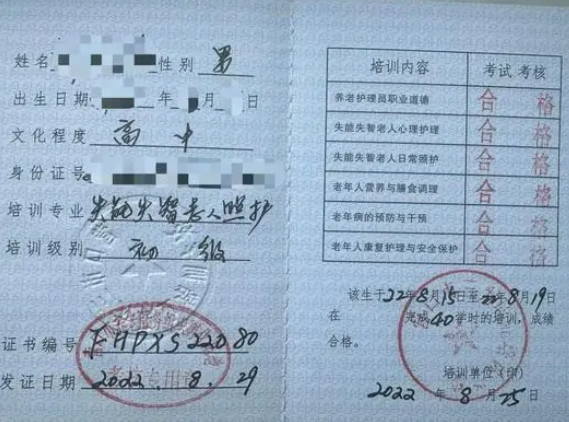 姓名 性别 男
出生日期 年 月 日
文化程度 高中
身份证号
培训专业 失能失智老人照护
培训级别 初级
证书编号 FHPXS22080
发证日期 2022.8.29
考核专用章
培训内容 考试 考核
养老护理员职业道德 合格
失能失智老人心理护理 合格
失能失智老人日常照护 合格
老年人营养与膳食调理 合格
老年病的预防与干预 合格
老年人康复护理与安全保护 合格
该生于22年8月15日至22年8月19日
在 完成40学时的培训，成绩
合格。
培训单位（印）
2022 年 8 月 25 日